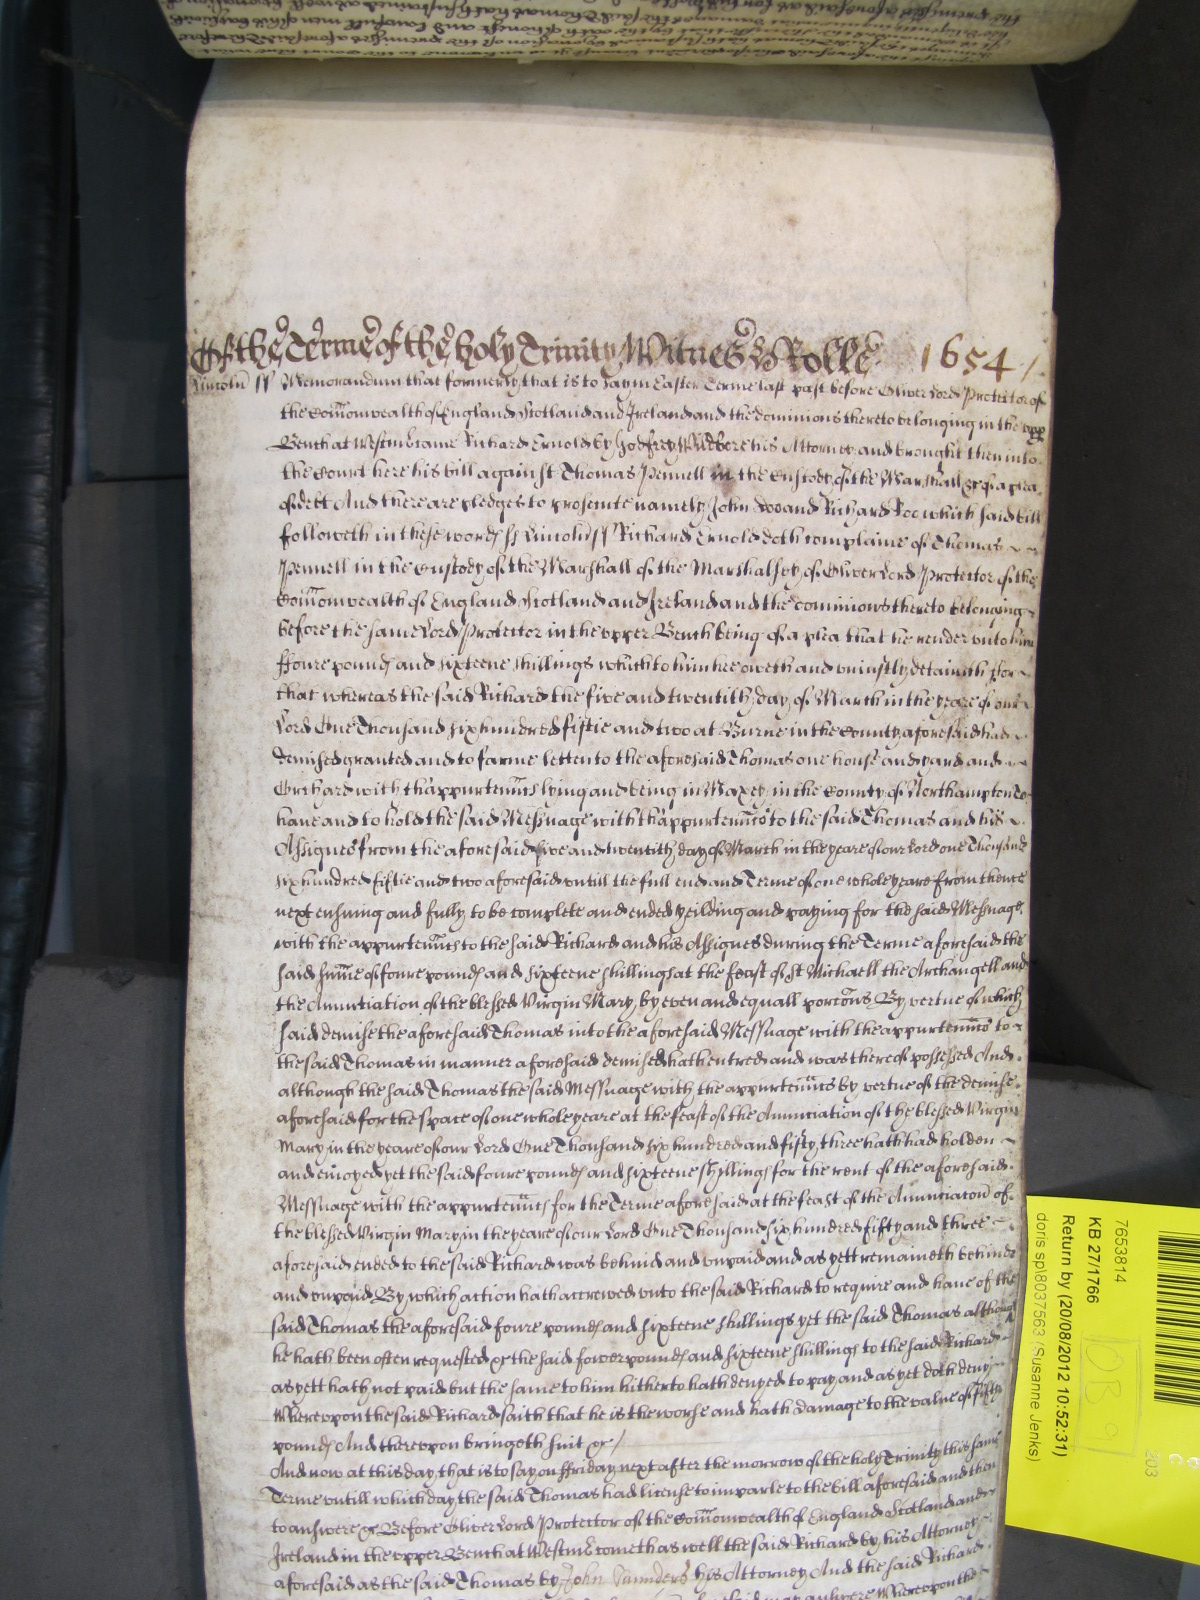 Of the Terme of the holy Trinity Witnes H Rolle 1654
Lincoln ss Memorandum that formerly that is to say in Easter Terme last past before Oliver Lord Protector of
the Com̄onwealth of England Scotland and Ireland and the dominions thereto belonging in the vpp
Bench at Westm̄ came Richard Ernold by Godfrey his Attorney and brought then into
the Court here his bill against Thomas Pennell in the Custody of the Marshall &c of a plea
of debt And there are pledges to prosecute namely John Doo and Richard Roe which said bill
followeth in these words ss Lincoln ss Richard Ernold doth complaine of Thomas
Pennell in the Custody of the Marshall of the Marshalsey of Oliver Lord Protector of the
Com̄onwealth of England Scotland and Ireland and the dominions thereto belonging
before the same Lord Protector in the vpper Bench being of a plea that he render vnto him
ffoure pounds and sixteene shillings which to him hee oweth and vniustly detaineth ffor
that whereas the said Richard the five and twentith day of March in the yeare of our
Lord One Thousand six hundred fiftie and two at Burne in the County aforesaid had
demised granted and to farme letten to the aforesaid Thomas one house and yard and
Orichard with th'appurten̄ncs lying and being in Maxey in the County of Northampton To
haue and to hold the said Messuage with th'appurten̄ncs to the said Thomas and his
Assignes from the aforesaid five and twentith day of March in the yeare of our Lord one Thousand
six hundred fiftie and two aforesaid vntill the full end and Terme of one whole yeare from thence
next ensuing and fully to be complete and ended yeilding and paying for the said Messuage
with the appurten̄ncs to the said Richard and his Assignes during the Terme aforesaid the
said sum̄e of foure pounds and sixteene shillings at the feast of St Michaell the Archangell and
the Anunciation of the blessed Virgin Mary by even and equall porc̄ons By vertue of which
said demise the aforesaid Thomas into the aforesaid Messuage with the appurten̄ncs to
the said Thomas in manner aforesaid demised hath entred and was thereof possessed And
although the said Thomas the said Messuage with the appurten̄ncs by vertue of the demise
aforesaid for the space of one whole yeare at the feast of the Anunciation of the blessed Virgin
Mary in the yeare of our Lord One Thousand six hundred and fifty three hath had holden
and enioyed yet the said foure pounds and sixteene shillings for the rent of the aforesaid
Messuage with the appurten̄ncs for the Terme aforesaid at the feast of the Anunciatoñ of
the blessed Virgin Mary in the yeare of our Lord One Thousand six hundred fifty and three
aforesaid ended to the said Richard was behind and vnpaid and as yett remaineth behinde
and vnpaid By which action hath accrewed vnto the said Richard to require and haue of the
said Thomas the aforesaid foure pounds and sixteene shillings yet the said Thomas although
he hath been often requested &c the said fower pounds and sixteene shillings to the said Richard
as yett hath not paid but the same to him hitherto hath denyed to pay and as yet doth deny
Wherevpon the said Richard saith that he is the worse and hath damage to the value of
pounds And therevpon bringeth suit &c /
And now at this day that is to say on ffriday next after the morrow of the holy Trinity this same
Terme vntill which day the said Thomas had license to imparle to the bill aforesaid and then
to answere &c Before Oliver Lord Protector of the Com̄onwealth of England Scotland and
Ireland in the vpper Bench at Westm̄ cometh as well the said Richard by his Attorney
aforesaid as the said Thomas by John Saunders his Attorney And the said Richard
7653814
KB 27/1766
Return by (20/08/2012 10:52:31)
doris sp\8037563 (Susanne Jenks)
203